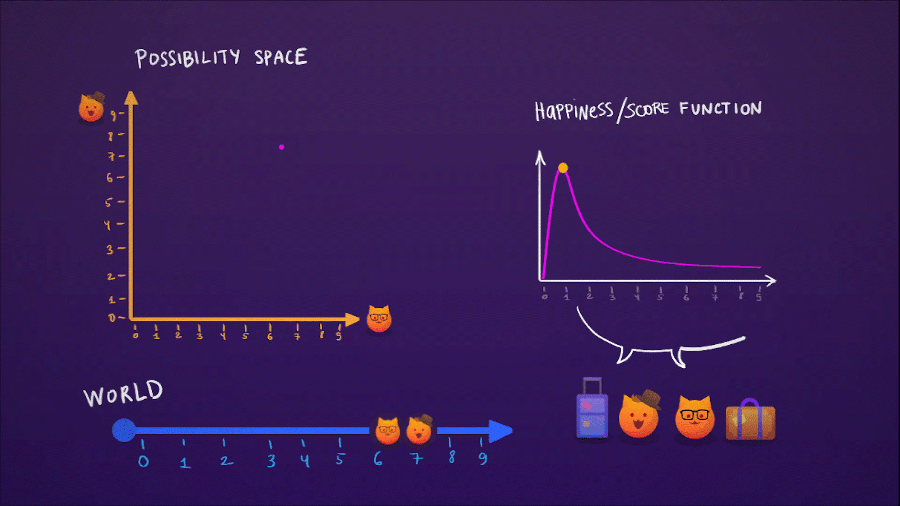 POSSIBILITY SPACE
9
8
7
6
5
4
3
2
1
0
0 1 2 3 4 5 6 7 8 9
HAPPINESS/SCORE FUNCTION
0 1 2 3 4 5 6 7 8 9
WORLD
0 1 2 3 4 5 6 7 8 9